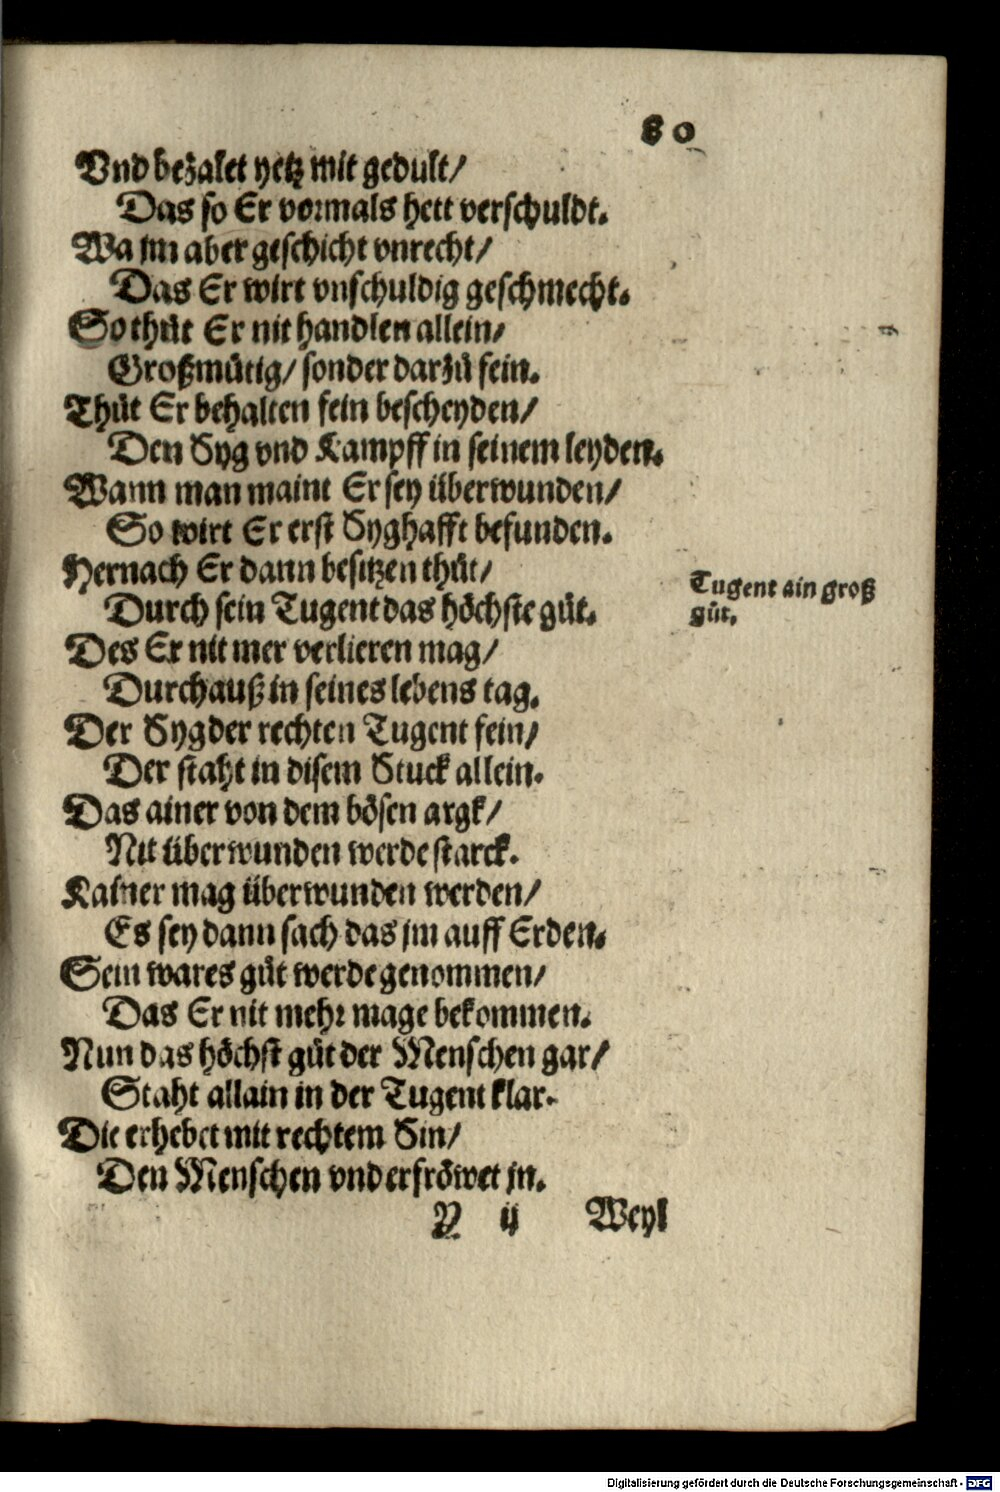 80
Vnd bezalet yetz mit gedult/
Das so Er vormals hett verschuldt.
Wa jm aber geschicht vnrecht/
Das Er wirt vnschuldig geschmecht.
So thůt Er nit handlen allein/
Großmůtig/ sonder darzů fein.
Thůt Er behalten fein bescheyden/
Den Syg vnd Kampff in seinem leyden.
Wann man maint Er sey überwunden/
So wirt Er erst Syghafft befunden.
Hernach Er dann besitzen thůt/
Durch sein Tugent das höchste gůt.
Tugent ain groß
gůt.
Des Er nit mer verlieren mag/
Durchauß in seines lebens tag.
Der Syg der rechten Tugent fein/
Der staht in disem Stuck allein.
Das ainer von dem bösen argk/
Nit überwunden werde starck.
Kainer mag überwunden werden/
Es sey dann sach das jm auff Erden.
Sein wares gůt werde genommen/
Das Er nit mehr mage bekommen.
Nun das höchst gůt der Menschen gar/
Staht allain in der Tugent klar.
Die erhebet mit rechtem Sin/
Den Menschen vnd erfröwet jn.
V ij Weyl
Digitalisierung gefördert durch die Deutsche Forschungsgemeinschaft - DFG